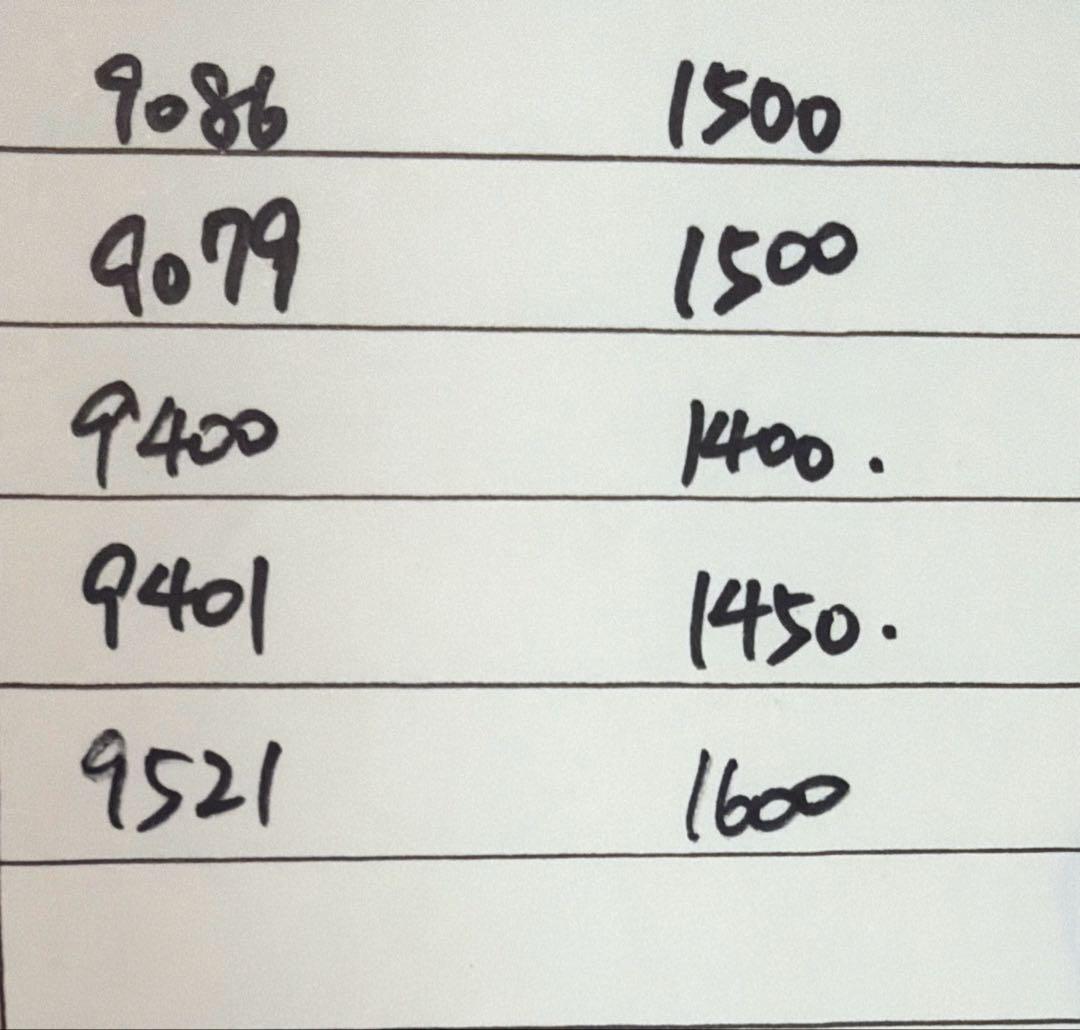 9086 1500
9079 1500
9400 1400.
9401 1450.
9521 1600